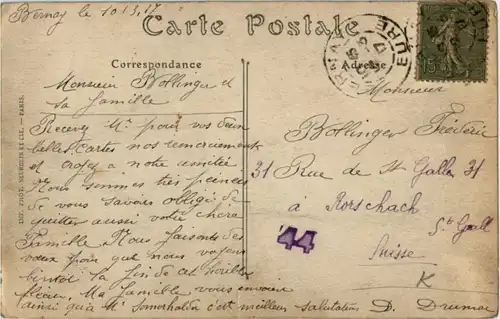 Bernay le 10.3.17
Carte Postale
Correspondance
Adresse
BERNAY
EURE
15c
Monsieur Bollinger et
sa famille
Recevez Mr pour vos deux
belles Cartes nos remerciements
et croyez a notre amitié
Nous sommes très peinés
de vous savoir obligé de
quitter aussi votre chère
Famille Nous faisons des
vœux pour que nous voyons
bientôt la fin de cet horrible
fléau. Ma famille vous envoie
ainsi qu'à Mr c'est meilleurs salutations D.
Monsieur
Bollinger Frédéric
31 Rue de St Gallen 31
a Rorschach
St Gall
Suisse
44
K
IMP. PHOT. NEURDEIN ET CIE. — PARIS.